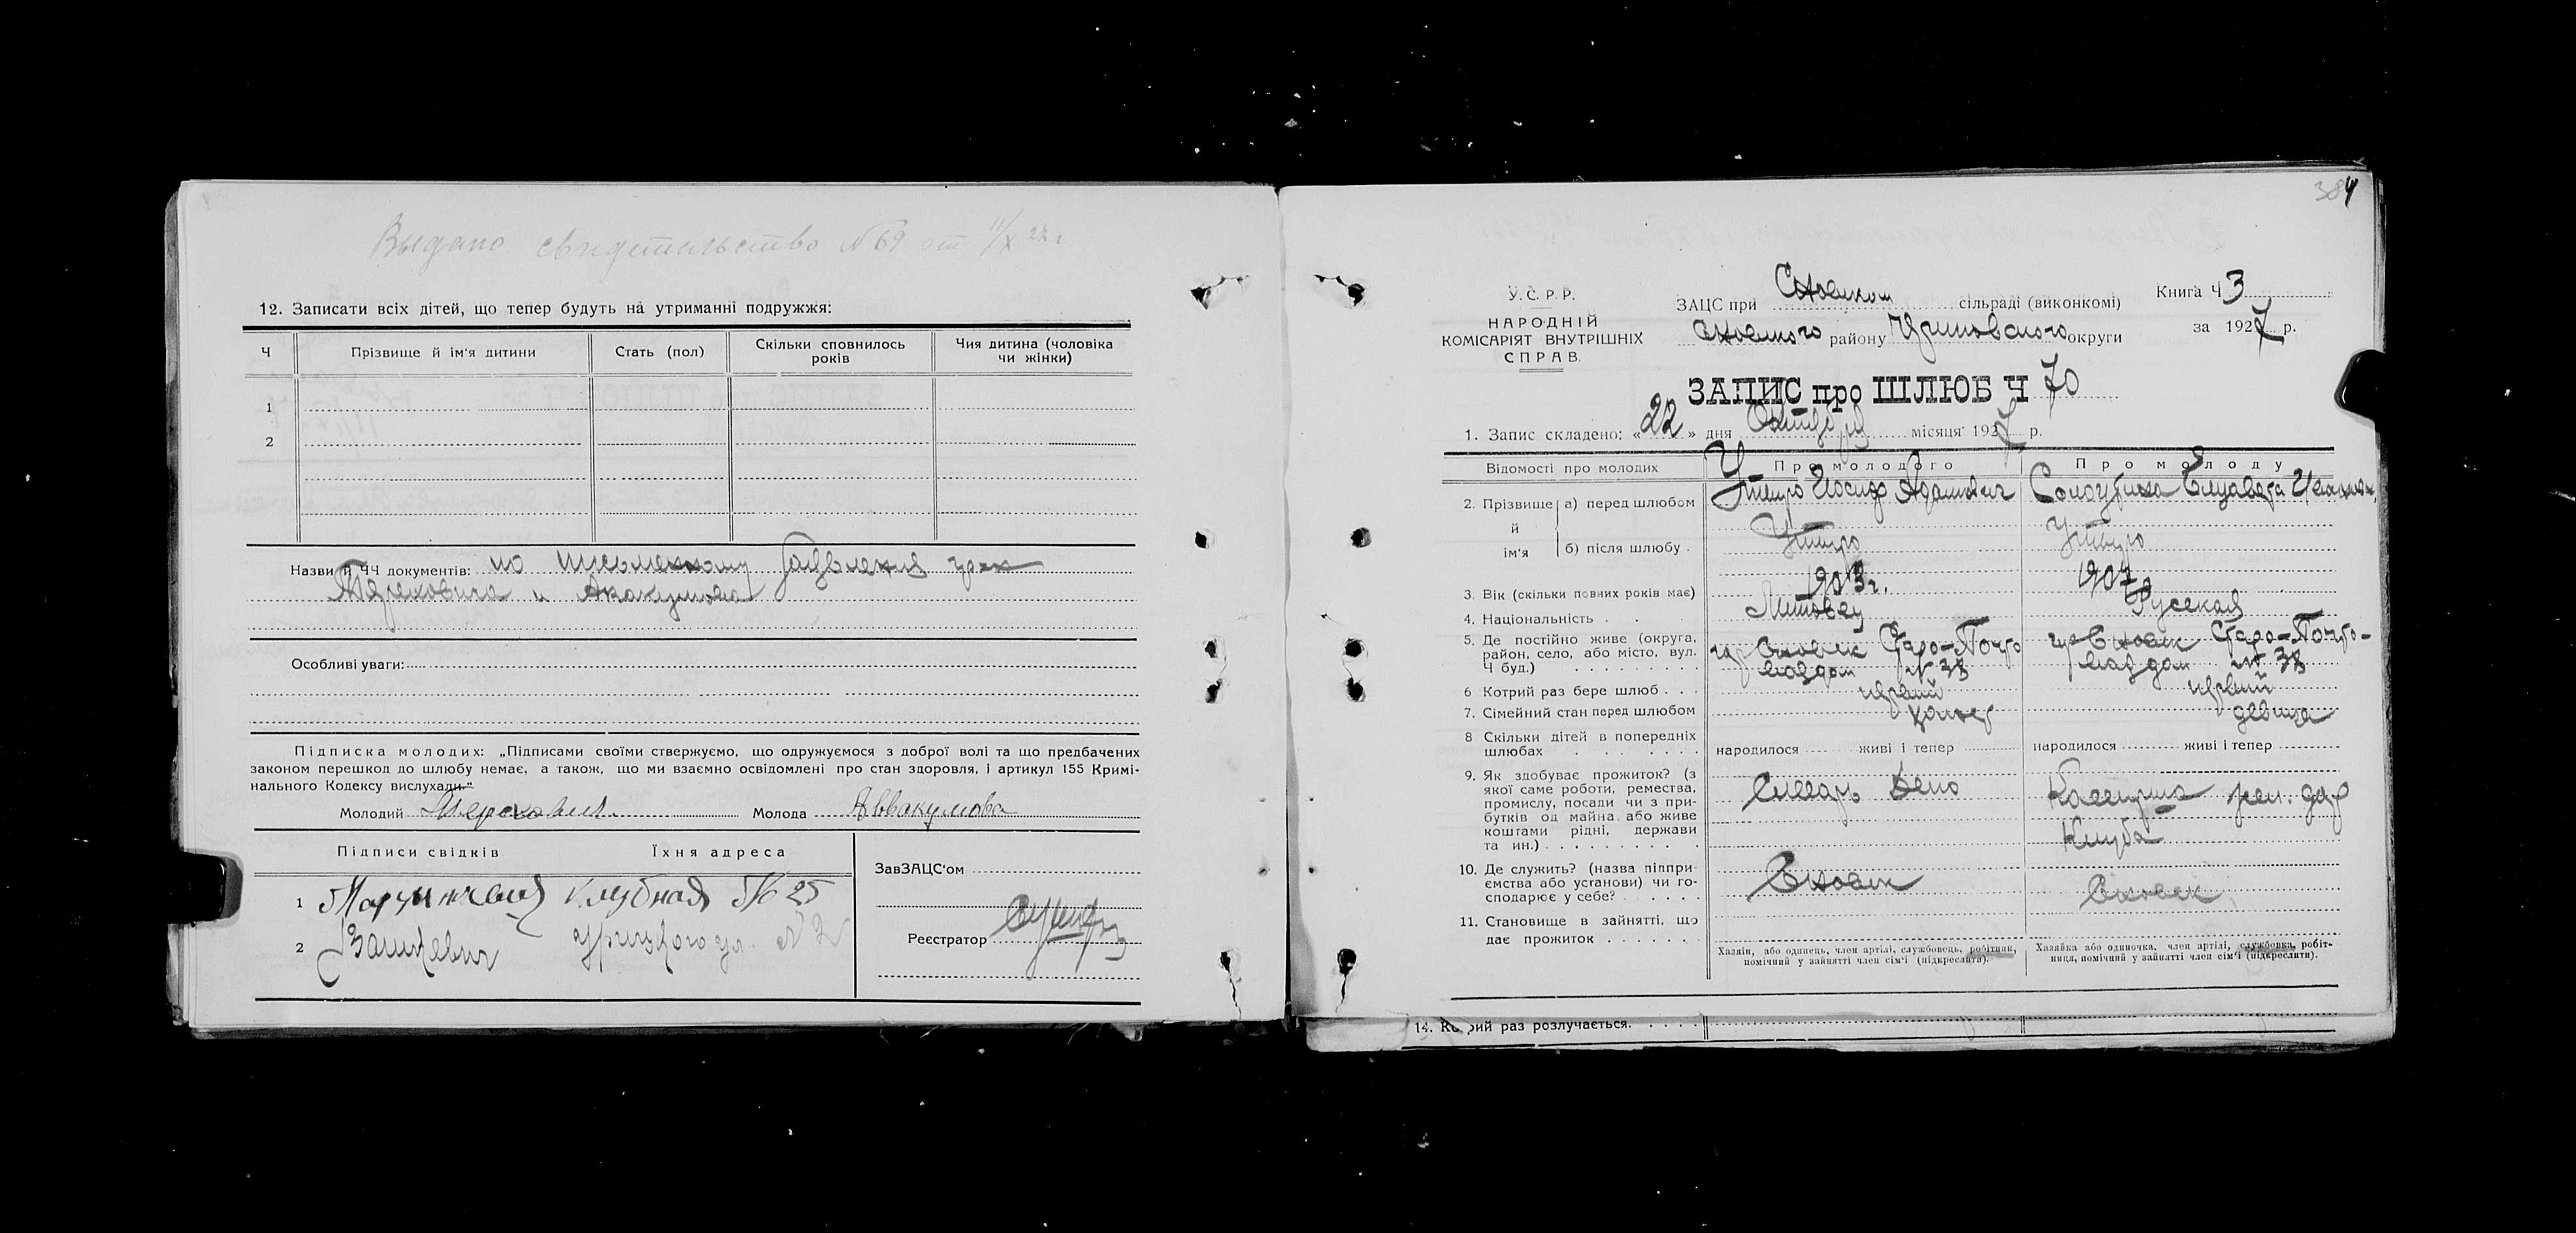 Выдано свидетельство №69 от 11/X 27 г
12. Записати всіх дітей, що тепер будуть на утриманні подружжя:
Ч
Прізвище й ім'я дитини
Стать (пол)
Скільки сповнилось років
Чия дитина (чоловіка чи жінки)
1
2
Назви й ЧЧ документів: по письменному заявления гр-н
и Авакумова
Особливі уваги:
Підписка молодих: „Підписами своїми ствержуємо, що одружуємося з доброї волі та що предбачених
законом перешкод до шлюбу немає, а також, що ми взаємно освідомлені про стан здоровля, і артикул 155 Кримі-
нального Кодексу вислухали."
Молодий
Молода Аввакумова
Підписи свідків
Їхня адреса
1 Клубная № 25
2 Урицкого ул. №
ЗавЗАЦС'ом
Реєстратор
384
У.С.Р.Р.
НАРОДНІЙ
КОМІСАРІЯТ ВНУТРІШНІХ
СПРАВ.
ЗАЦС при Сновском сільраді (виконкомі)
Книга Ч 3
Сновского району округи
за 1927 р.
ЗАПИС про ШЛЮБ Ч 70
1. Запис складено: «22» дня Октября місяця 1927 р.
Відомості про молодих
Про молодого
Про молоду
2. Прізвище й ім'я
а) перед шлюбом
Иосиф Адамович
Елизавета
б) після шлюбу
3. Вік (скільки повних років має)
1903 г.
1907 г
4. Національність
Литовец
Русская
5. Де постійно живе (округа,
район, село, або місто, вул.
Ч буд.)
гор Сновск Старо-Почто
вая дом № 38
гор Сновск Старо-Почто-
вая дом № 38
6 Котрий раз бере шлюб
первый
первый
7. Сімейний стан перед шлюбом
холост
девица
8 Скільки дітей в попередніх
шлюбах
народилося живі і тепер
народилося живі і тепер
9. Як здобуває прожиток? (з
якої саме роботи, ремества,
промислу, посади чи з при-
бутків од майна або живе
коштами рідні, держави
та ин.)
Слесарь Депо
Кассирша жел. дор
Клуба
10. Де служить? (назва підпри-
ємства або установи) чи го-
сподарює у себе?
Сновск
Сновск
11. Становище в зайнятті, що
дає прожиток
Хазяїн, або одинець, член артілі, службовець, робітник,
помічний у зайнятті член сім'ї (підкреслити).
Хазяйка або одиночка, член артілі, службовка, робіт-
ниця, помічний у зайнятті член сім'ї (підкреслити).
14. Котрий раз розлучається.